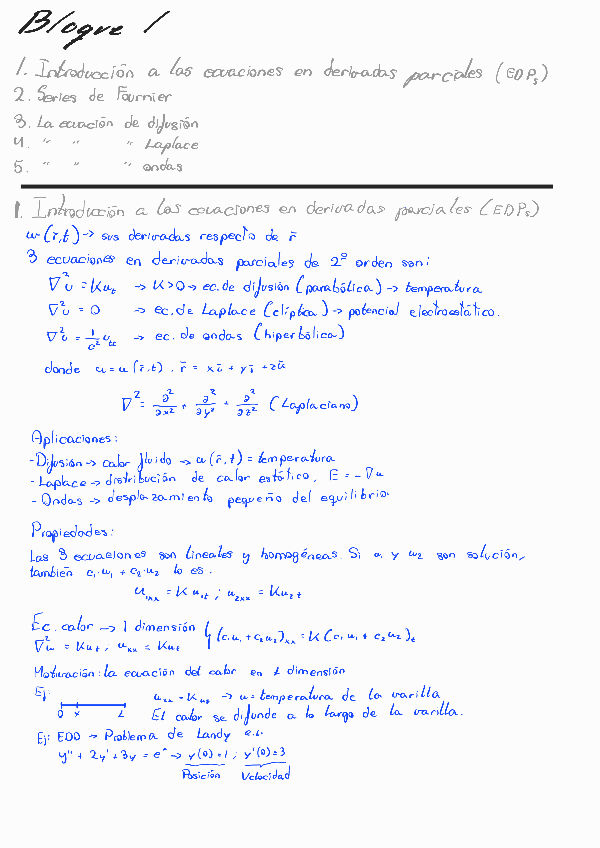 Bloque 1
1. Introducción a las ecuaciones en derivadas parciales (EDPs)
2. Series de Fournier
3. La ecuación de difusión
4. " " " Laplace
5. " " " ondas
1. Introducción a las ecuaciones en derivadas parciales (EDPs)
u(r̄,t) → sus derivadas respecto de r̄
3 ecuaciones en derivadas parciales de 2º orden son:
∇²u = Kuₜ → K>0 → ec. de difusión (parabólica) → temperatura
∇²u = 0 → ec. de Laplace (elíptica) → potencial electroestático.
∇²u = 1/c² uₜₜ → ec. de ondas (hiperbólica)
donde u = u(r̄,t), r̄ = xū + yj̄ + zk̄
∇² = ∂²/∂x² + ∂²/∂y² + ∂²/∂z² (Laplaciano)
Aplicaciones:
- Difusión → calor fluido → u(r̄,t) = temperatura
- Laplace → distribución de calor estático, E = -∇u
- Ondas → desplazamiento pequeño del equilibrio.
Propiedades:
Las 3 ecuaciones son lineales y homogéneas. Si u₁ y u₂ son solución,
también c₁·u₁ + c₂·u₂ lo es.
u₁ₓₓ = K u₁,t ; u₂ₓₓ = K u₂t
Ec. calor → 1 dimensión { (c₁u₁ + c₂u₂)ₓₓ = K(c₁u₁ + c₂u₂)ₜ
∇²u = Kuₜ, uₓₓ = Kuₜ
Motivación: la ecuación del calor en 1 dimensión
Ej: uₓₓ = Kuₜ → u = temperatura de la varilla
0 x L El calor se difunde a lo largo de la varilla.
Ej: EDO → Problema de Landy e.c.
y'' + 2y' + 3y = eˣ → y(0) = 1 ; y'(0) = 3
Posición Velocidad